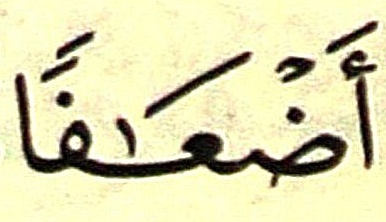 أَضْعَٰفًا